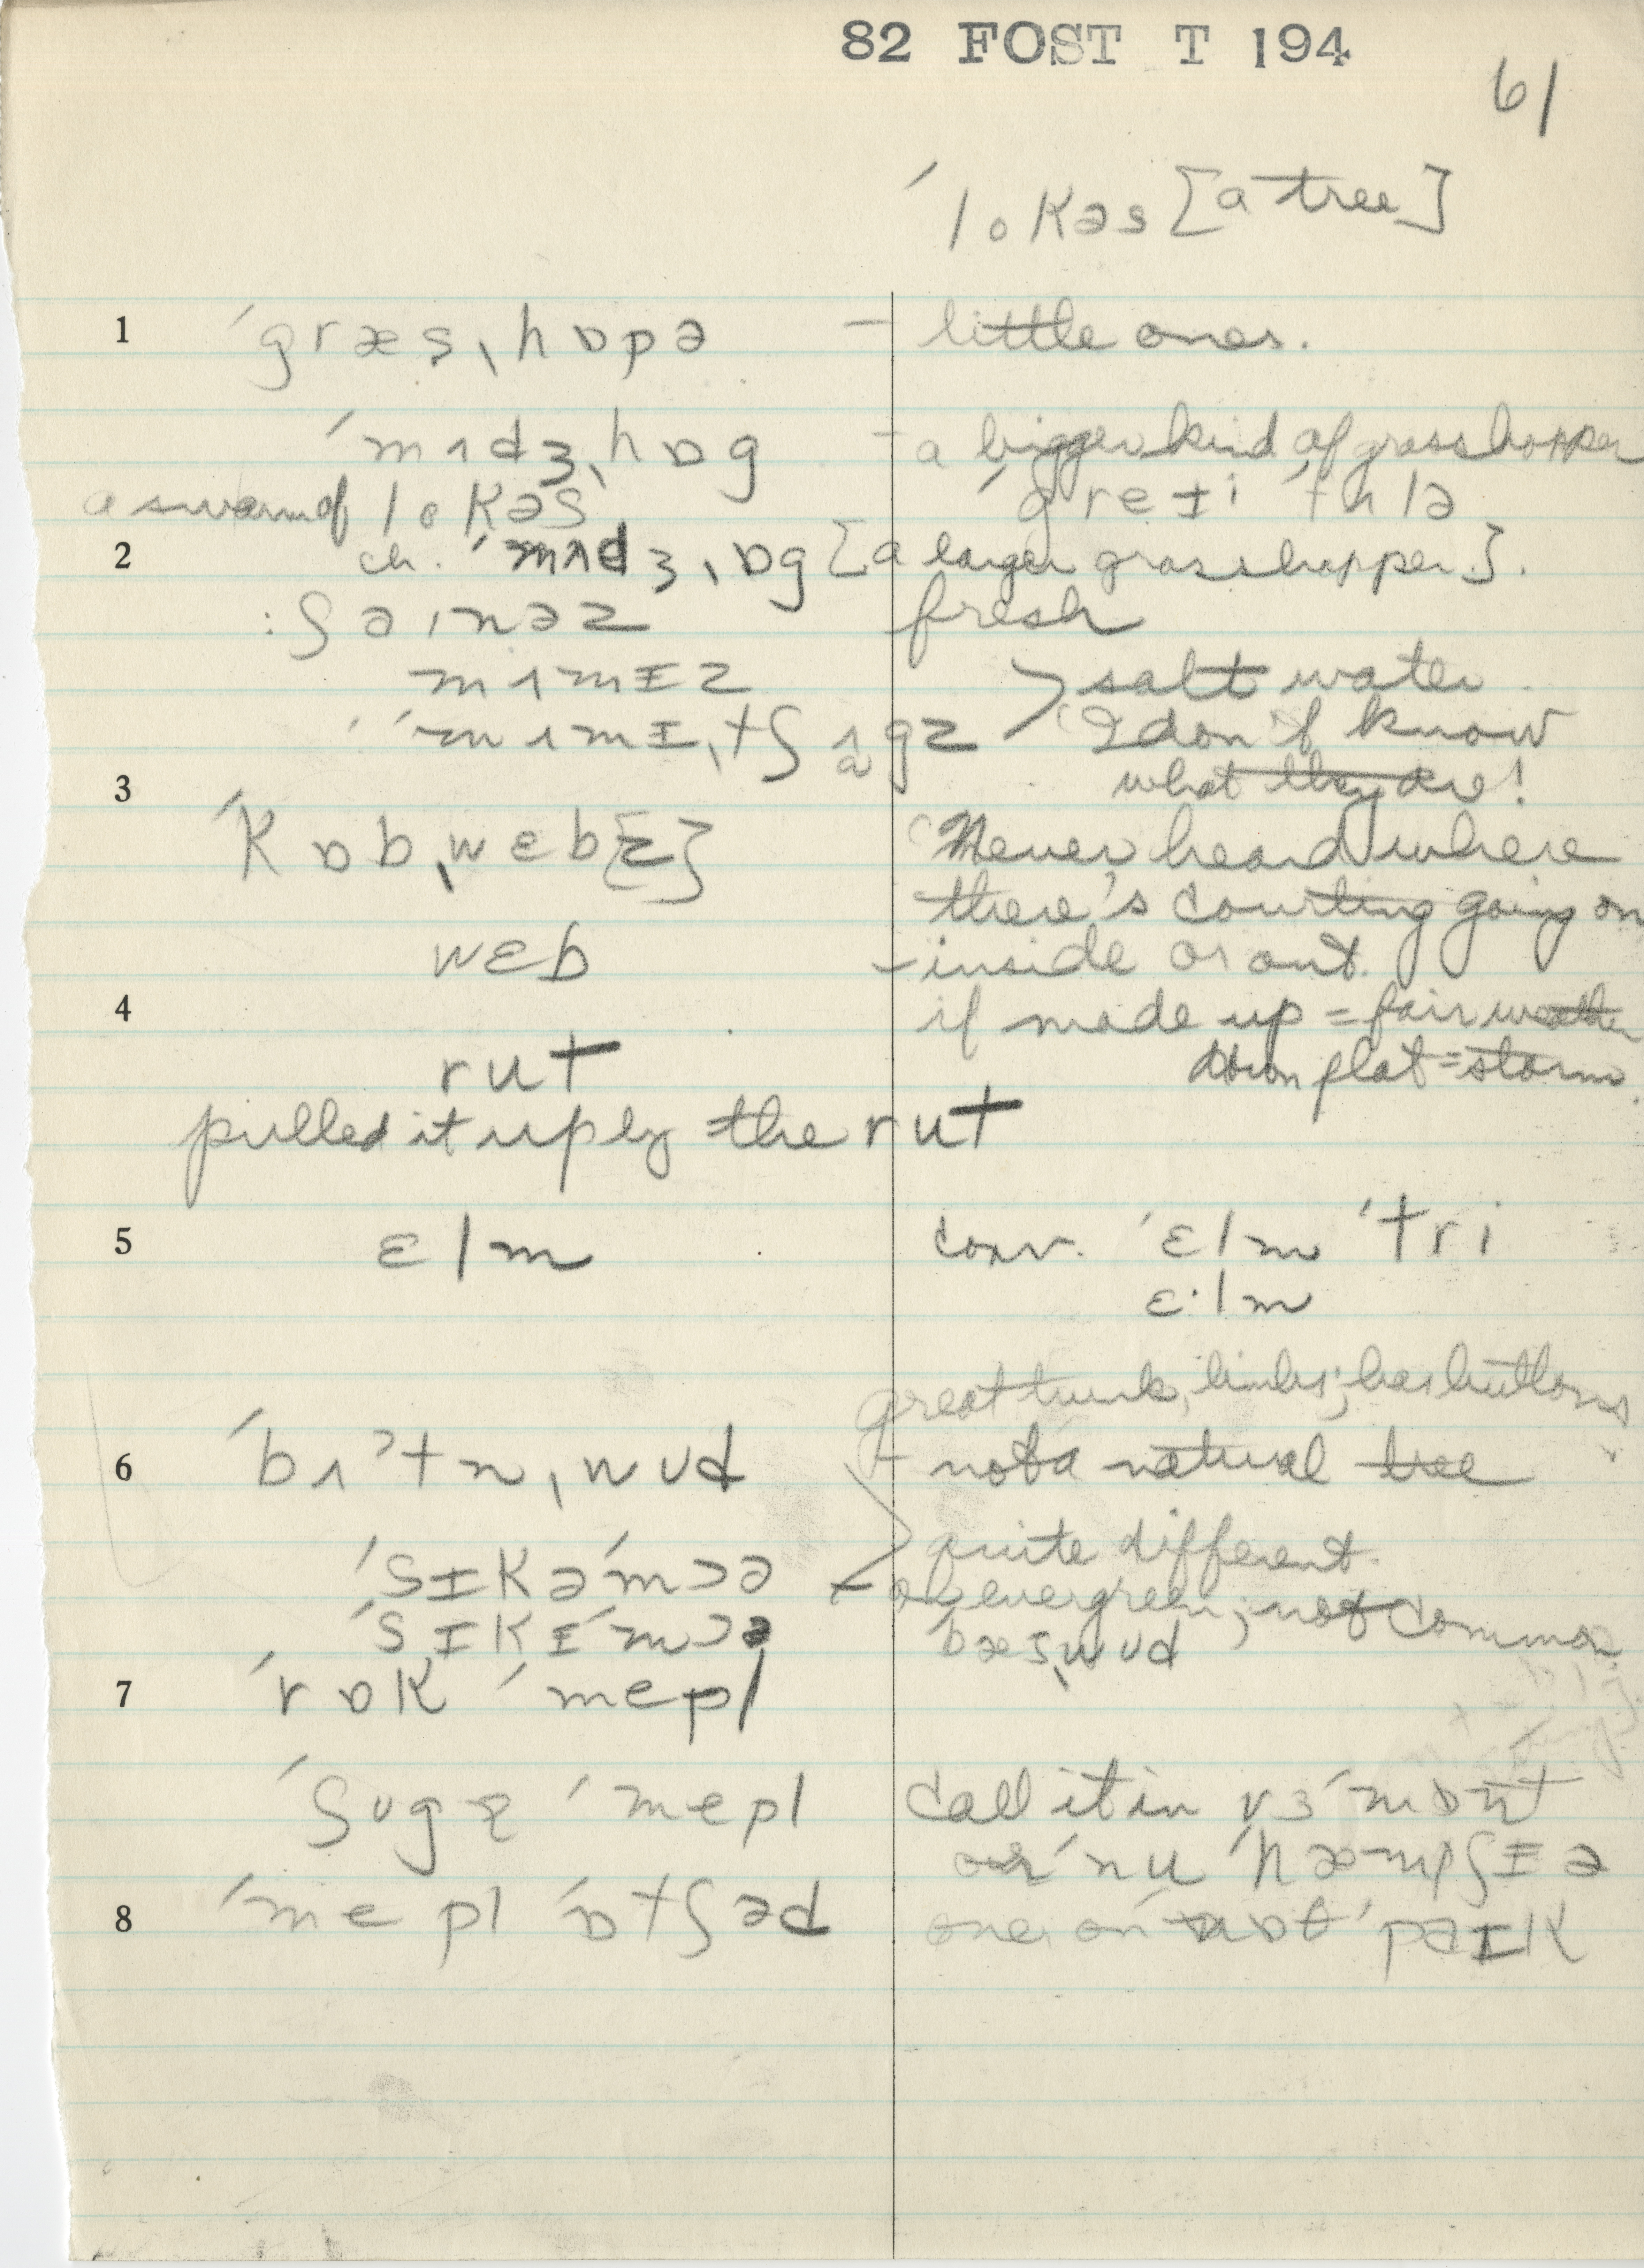 82 FOST T 194
61
ˈlokəs [a tree]
1 ˈgræsˌhɒpə – little ones.
ˈmʌdʒˌhɒg – a bigger kind of grasshopper
a swarm of lokəs ˈgreɪi
2 ch. ˈmʌdʒˌɒg [a larger grasshopper].
: ʃaɪnəz fresh
mʌmɪz > salt water.
ˈmʌmɪˌtʃʌgz I don't know
what they are!
3 ˈkɒbˌwɛb{z} Never heard where
there's courting going on
wɛb – inside or out.
4 if made up = fair weather
rut down flat = storm.
pulled it up by the rut
5 ɛlm conv. ˈɛlm ˈtri
ɛ·lm
great trunk, limbs; has buttons
6 ˈbʌʔtnˌwud – not a natural tree
quite different.
ˈsɪkəˈmɔə – evergreen; not common.
ˈsɪkɪˈmɔə ˈbæsˌwud
7 ˈrɒk ˈmepl
ˈʃugɚ ˈmepl call it in vɜˈmɒnt
or ˈnu ˈhæmpʃɪə
8 ˈmepl ˈɒtʃəd one on ˈpəɪk